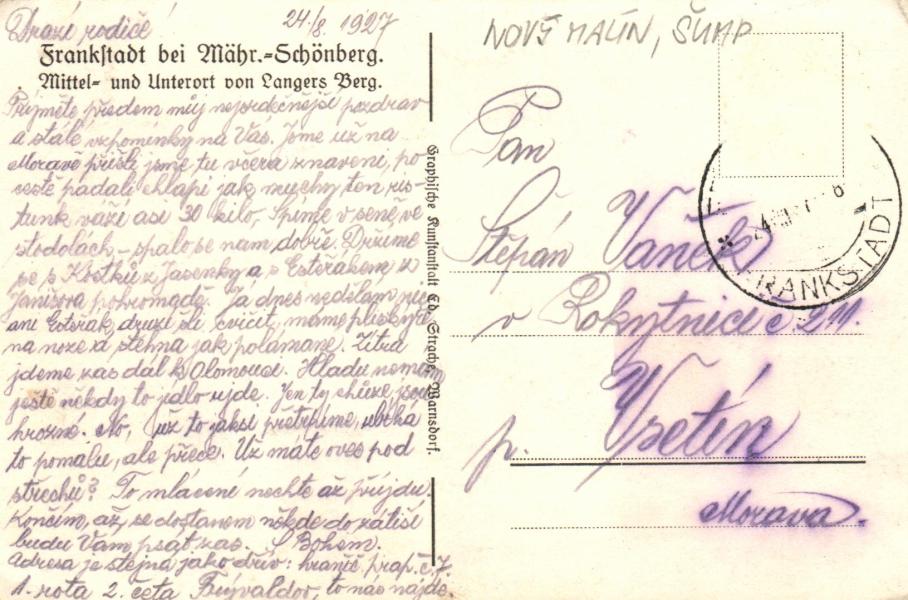 Drazí rodiče 24./8. 1927
Frankstadt bei Mähr.-Schönberg.
Mittel- und Unterort von Langers Berg.
Přijměte předem můj nejsrdečnější pozdrav
a stálé vzpomínky na Vás. Jsme už na
Moravě přišli jsme tu včera znaveni, po
cestě padali chlapi jak muchy ten ris-
tunk váží asi 30 kilo. Spíme v seně, ve
stodolách – spalo se nam dobře. Držíme
se s Kostků z Jasenky a s Esteřákem z
Janišova pohromadě. Ja dnes nedělam nic
ani Esteřak, druzí šli cvičit, mame pliskyře
na noze a stehna jak polamane. Zitra
jdeme zas dal k Olomouci. Hladu nemam
ještě někdy to jídlo ujde. Jen ty chůze jsou
hrozne. No, už to jaksi přetrpime, ubíhá
to pomalu, ale přece. Už máte oves pod
střechů? To mlácení nechte až přijdu.
Končím, až se dostanem někde do zátiší
budu Vám psát zas. S Bohem.
Adresa je stejná jako dřív: hranič. prap. č. 7.
1. rota 2. četa Frývaldov, to nás najde.
Graphische Kunstanstalt Ed. Strache, Warnsdorf.
NOVÝ MALÍN, ŠUMP
FRANKSTADT
Pan
Štěpán Vaněk
v Rokytnici č 211.
p. Vsetín
Morava.